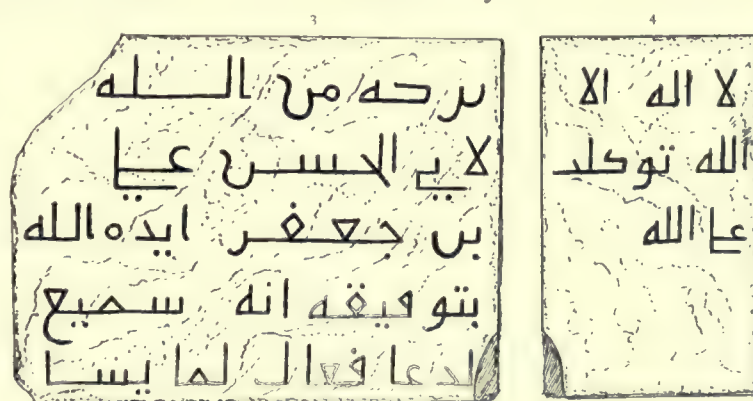 3
بركه من الله
لابي الحسن علي
بن جعفر ايده الله
بتوفيقه انه سميع
لدعا فعال لما يشا
4
لا اله الا
الله توكلت
علي الله